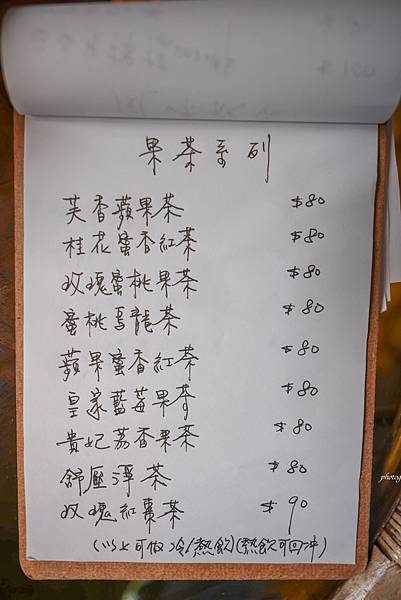 果茶系列
芙香蘋果茶 $80
桂花蜜香紅茶 $80
玫瑰蜜桃果茶 $80
蜜桃烏龍茶 $80
蘋果蜜香紅茶 $80
皇家藍莓果茶 $80
貴妃荔香果茶 $80
舒壓淨茶 $80
玫瑰紅棗茶 $90
(以上可做冷/熱飲)(熱飲可回沖)